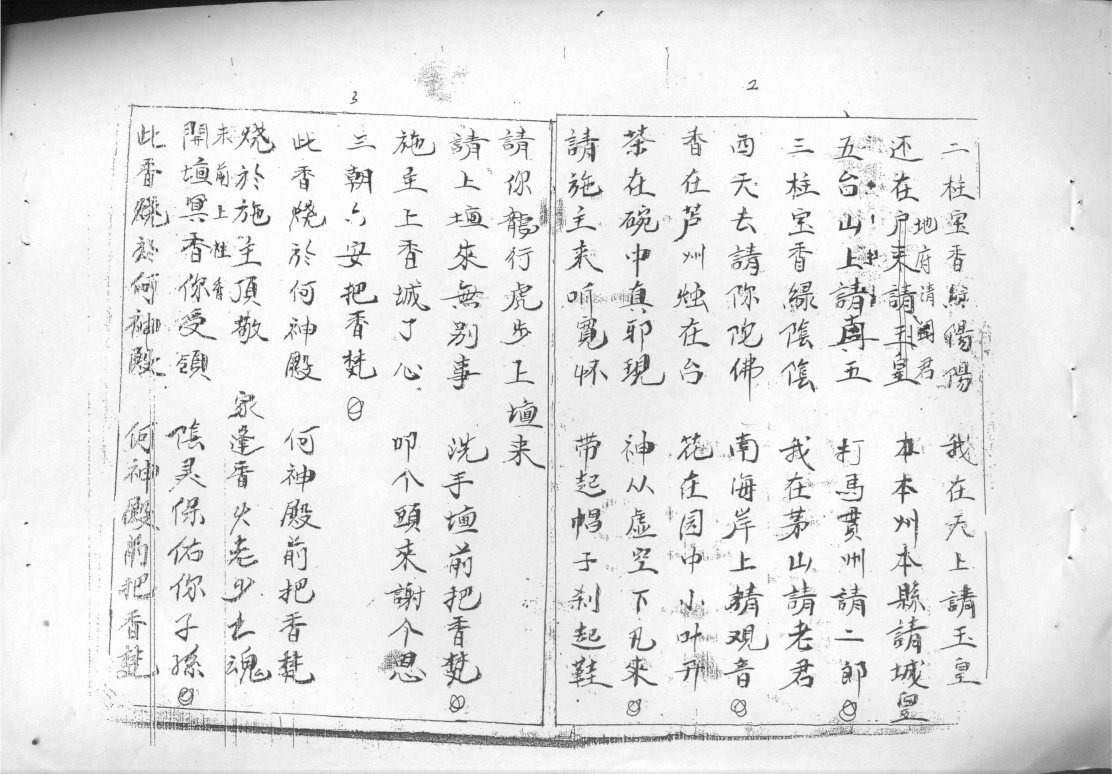 2
二柱宝香 陽陽 我在天上請玉皇
地府请阎君
还在户末請玉皇 本本州本縣請城皇
五台山上請真五 打馬贯州請二郎
三柱宝香緑陰陰 我在茅山請老君
西天去請弥陀佛 南海岸上請观音
香在芦州烛在台 花在园中小叶开
茶在碗中真邪現 神从虚空下凡來
請施主来听寬怀 带起帽子刹起鞋
3
請你龍行虎步上壇来
請上壇來無别事 洗手壇前把香焚
施主上香城了心 叩个頭來謝个恩
三朝六安把香焚
此香燒於何神殿 何神殿前把香焚
烧於施主頂敬 家逢香火老少士魂
未前上 香
開壇冥香你受領 陰灵保佑你子孫
此香燒於何神殿 何神殿前把香焚